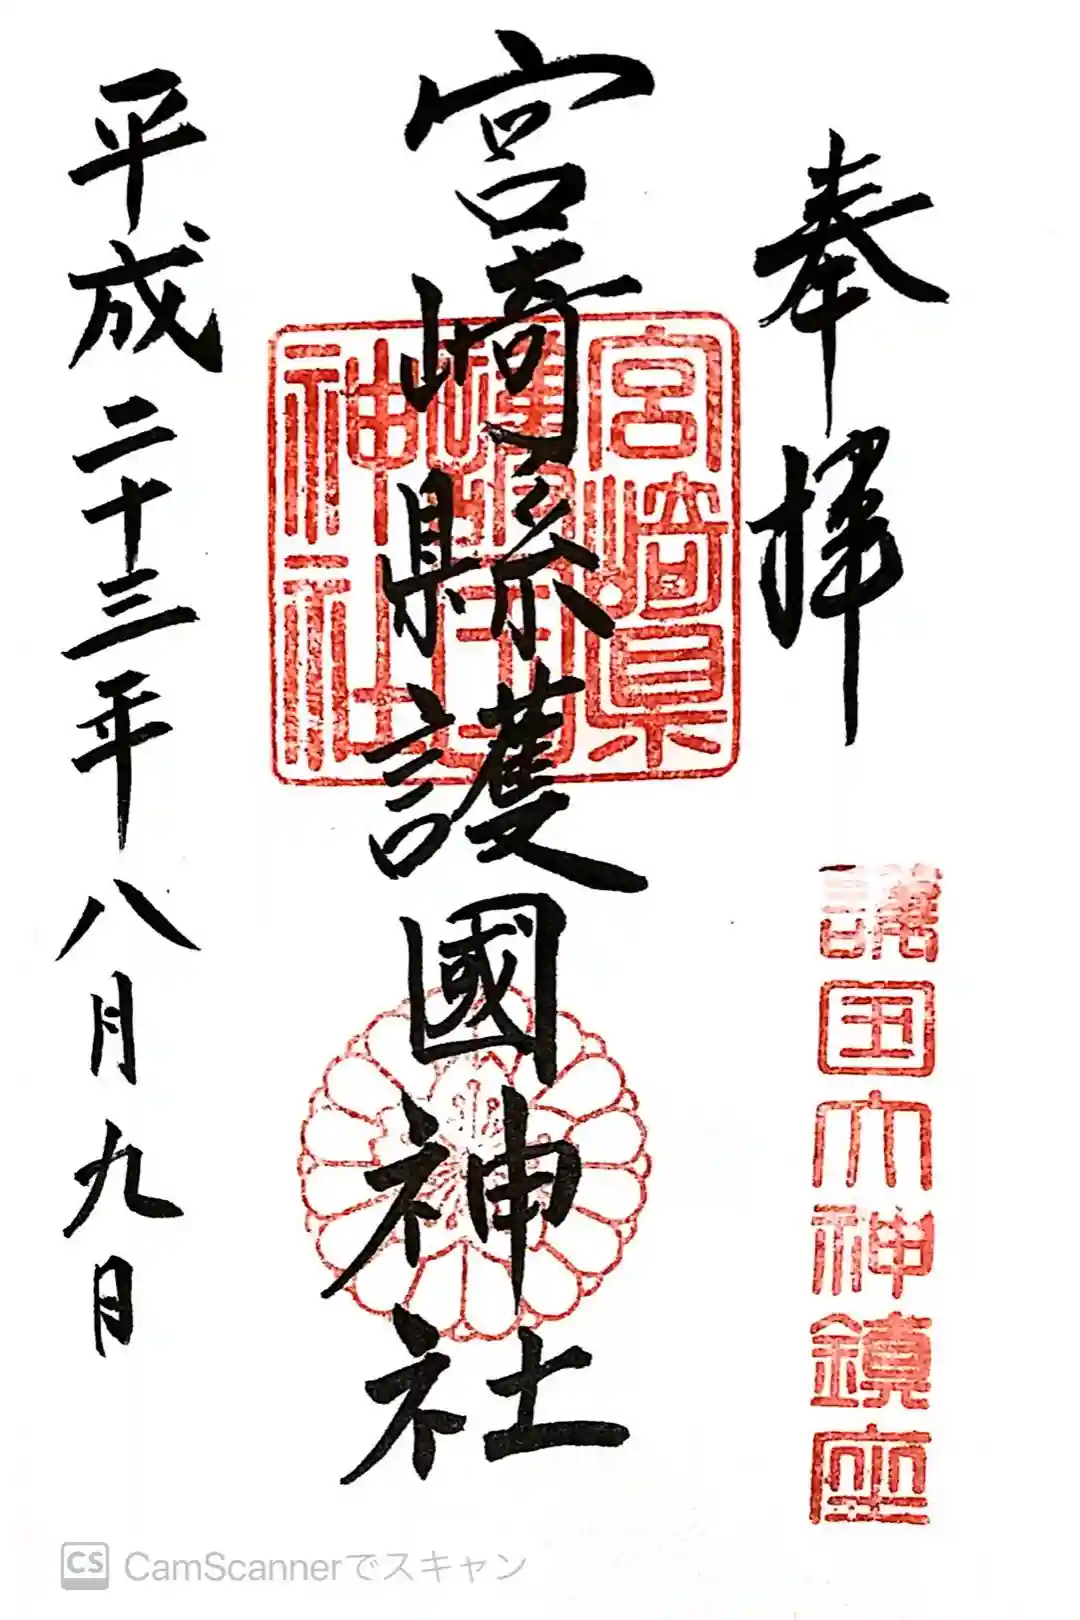 奉拝
護国大神鎮座
宮崎縣護國神社
宮崎県
護国
神社
平成二十三年八月九日
CS CamScannerでスキャン